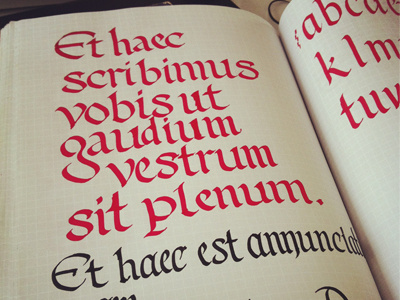 Et haec
scribimus
vobis ut
gaudium
vestrum
sit plenum.
Et haec est
abcd
klm
tuv